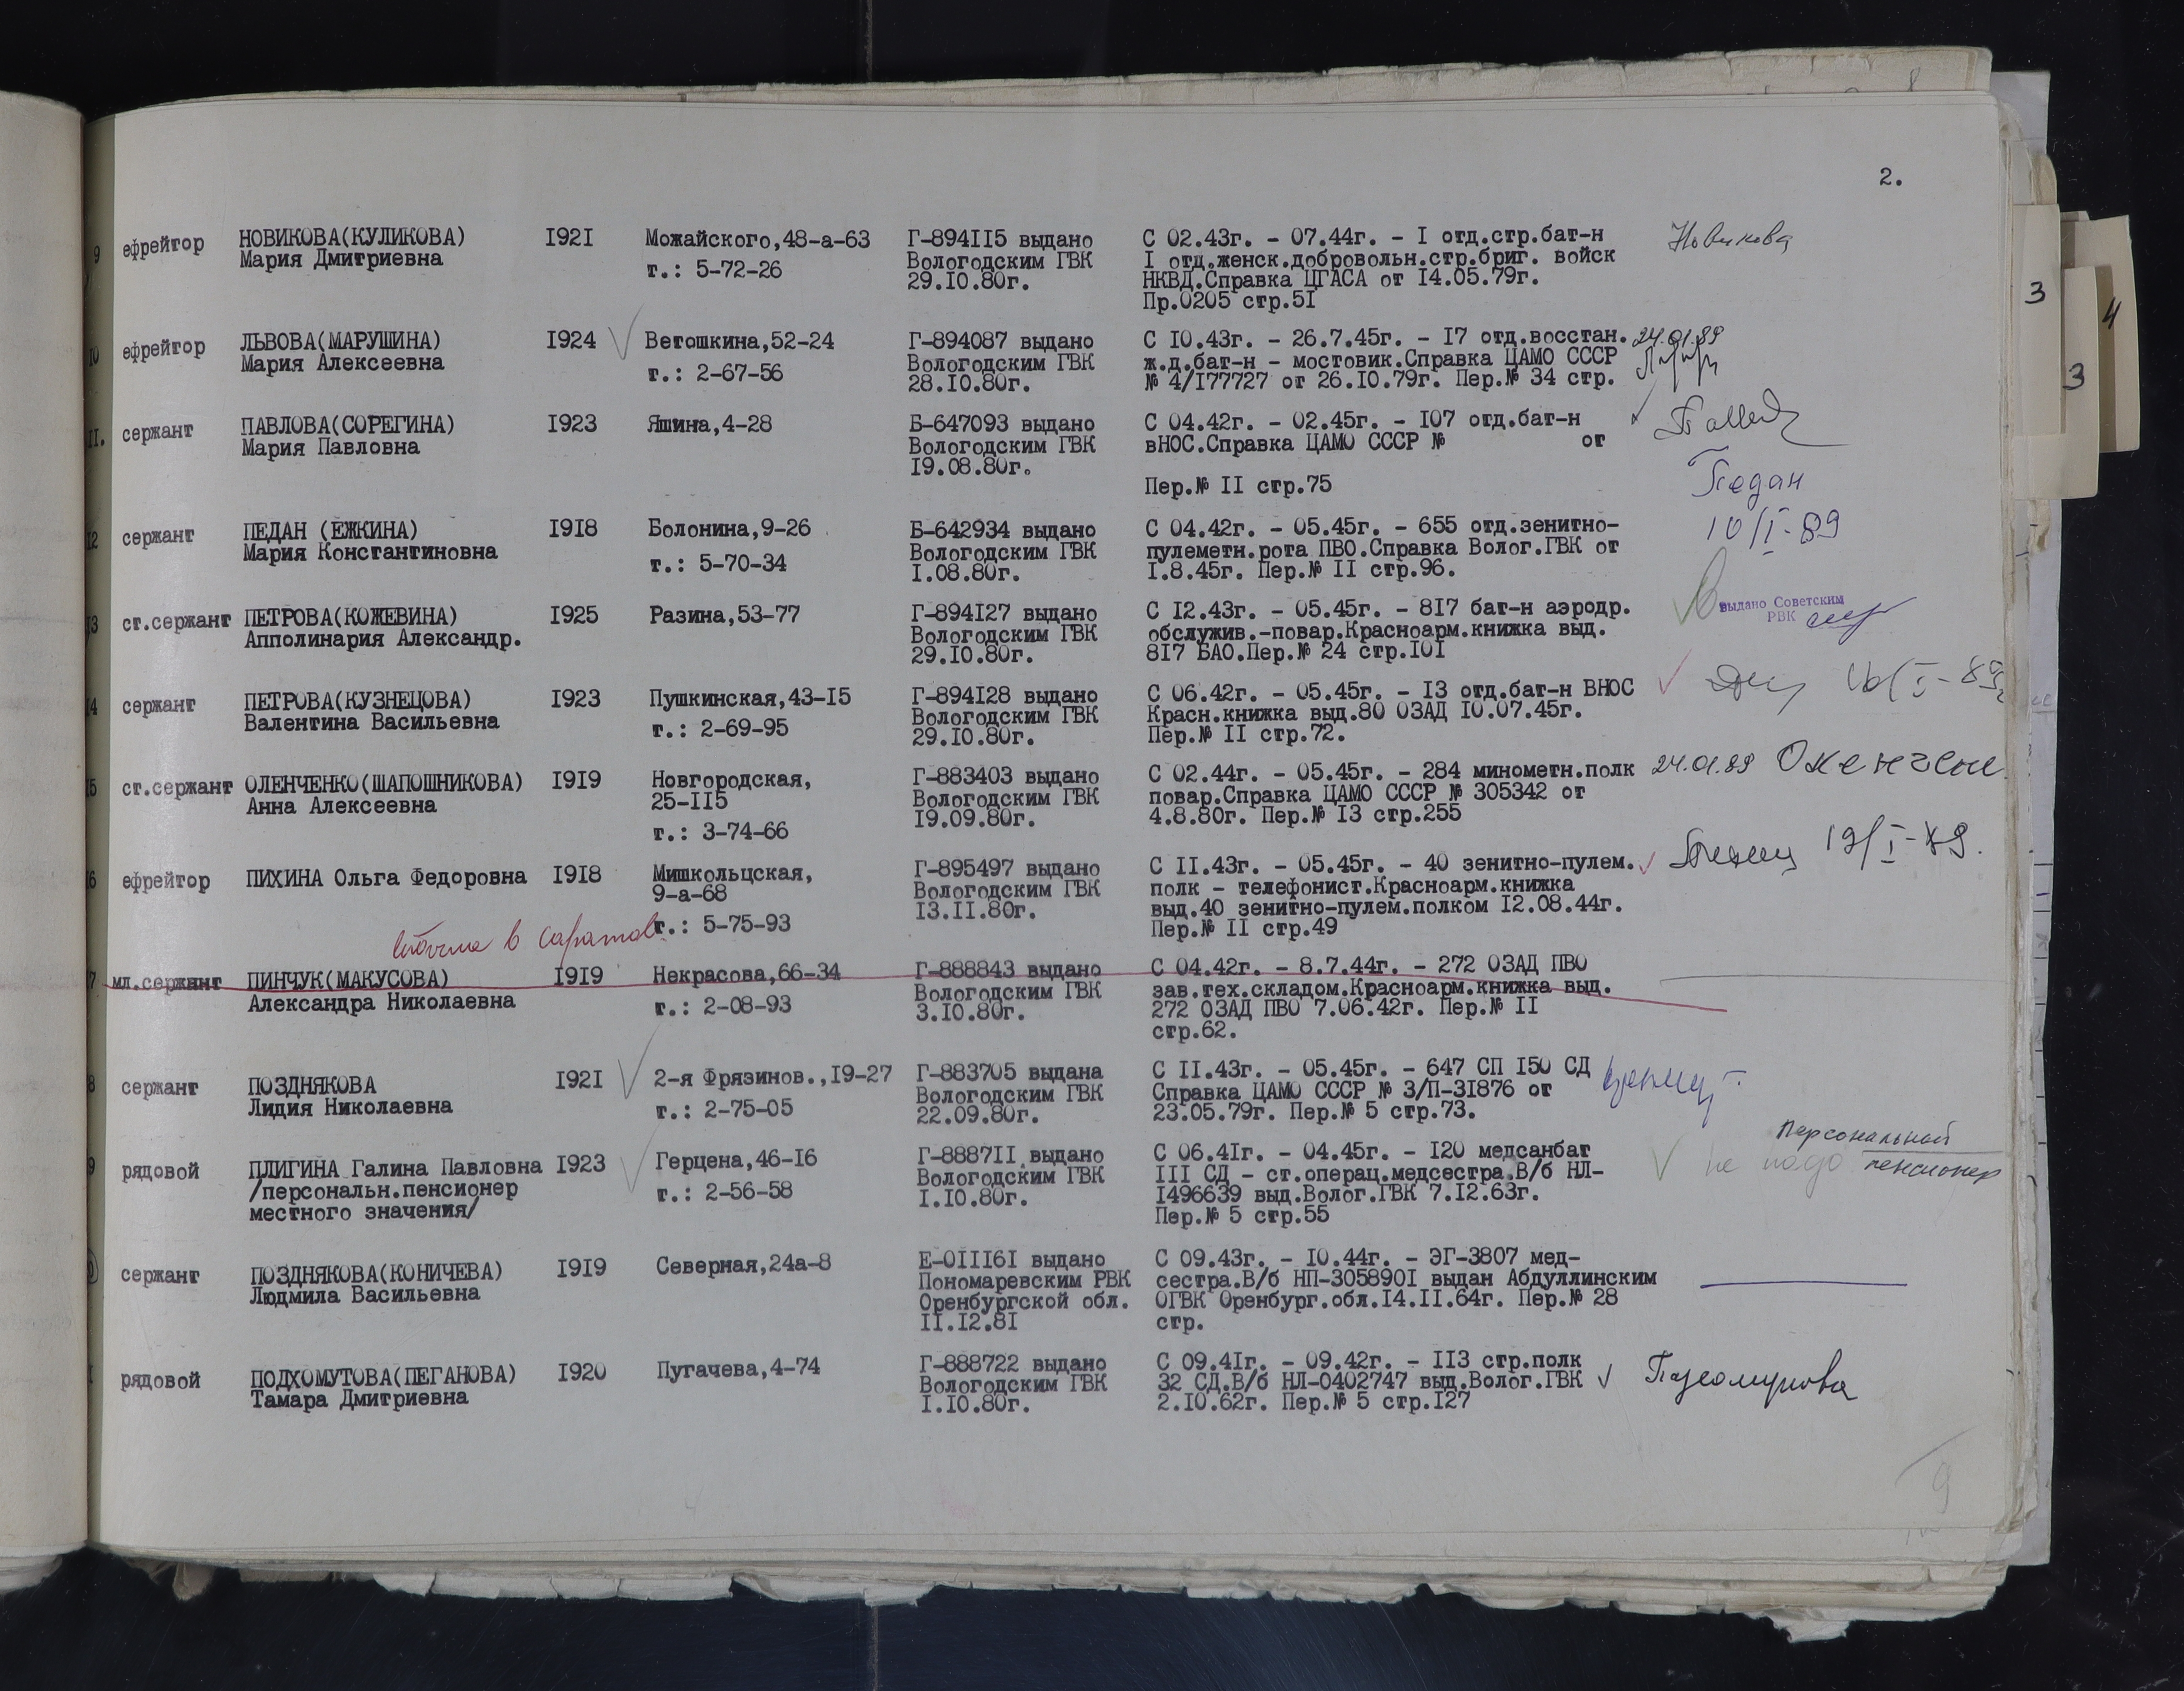 2.
9 ефрейтор НОВИКОВА(КУЛИКОВА) I92I Можайского,48-а-63 Г-894II5 выдано С 02.43г. - 07.44г. - I отд.стр.бат-н Новикова
Мария Дмитриевна т.: 5-72-26 Вологодским ГВК I отд.женск.добровольн.стр.бриг. войск
29.I0.80г. НКВД.Справка ЦГАСА от I4.05.79г.
Пр.0205 стр.5I
I0 ефрейтор ЛЬВОВА(МАРУШИНА) I924 Ветошкина,52-24 Г-894087 выдано С I0.43г. - 26.7.45г. - I7 отд.восстан. 24.01.89
Мария Алексеевна т.: 2-67-56 Вологодским ГВК ж.д.бат-н - мостовик.Справка ЦАМО СССР
28.I0.80г. № 4/I77727 от 26.I0.79г. Пер.№ 34 стр.
II. сержант ПАВЛОВА(СОРЕГИНА) I923 Яшина,4-28 Б-647093 выдано С 04.42г. - 02.45г. - I07 отд.бат-н
Мария Павловна Вологодским ГВК вНОС.Справка ЦАМО СССР № от
I9.08.80г.
Пер.№ II стр.75
Педан
I2 сержант ПЕДАН (ЕЖКИНА) I9I8 Болонина,9-26 Б-642934 выдано С 04.42г. - 05.45г. - 655 отд.зенитно- 10/I-89
Мария Константиновна т.: 5-70-34 Вологодским ГВК пулеметн.рота ПВО.Справка Волог.ГВК от
I.08.80г. I.8.45г. Пер.№ II стр.96.
I3 ст.сержант ПЕТРОВА(КОЖЕВИНА) I925 Разина,53-77 Г-894I27 выдано С I2.43г. - 05.45г. - 8I7 бат-н аэродр. выдано Советским
Апполинария Александр. Вологодским ГВК обслужив.-повар.Красноарм.книжка выд. РВК
29.I0.80г. 8I7 БАО.Пер.№ 24 стр.I0I
I4 сержант ПЕТРОВА(КУЗНЕЦОВА) I923 Пушкинская,43-I5 Г-894I28 выдано С 06.42г. - 05.45г. - I3 отд.бат-н ВНОС
Валентина Васильевна т.: 2-69-95 Вологодским ГВК Красн.книжка выд.80 ОЗАД I0.07.45г.
29.I0.80г. Пер.№ II стр.72.
I5 ст.сержант ОЛЕНЧЕНКО(ШАПОШНИКОВА) I9I9 Новгородская, Г-883403 выдано С 02.44г. - 05.45г. - 284 минометн.полк 24.01.89
Анна Алексеевна 25-II5 Вологодским ГВК повар.Справка ЦАМО СССР № 305342 от
т.: 3-74-66 I9.09.80г. 4.8.80г. Пер.№ I3 стр.255
I6 ефрейтор ПИХИНА Ольга Федоровна I9I8 Мишкольцская, Г-895497 выдано С II.43г. - 05.45г. - 40 зенитно-пулем.
9-а-68 Вологодским ГВК полк - телефонист.Красноарм.книжка
I3.II.80г. выд.40 зенитно-пулем.полком I2.08.44г.
т.: 5-75-93 Пер.№ II стр.49
в Саратов
I7 мл.сержант ПИНЧУК(МАКУСОВА) I9I9 Некрасова,66-34 Г-888843 выдано С 04.42г. - 8.7.44г. - 272 ОЗАД ПВО
Александра Николаевна т.: 2-08-93 Вологодским ГВК зав.тех.складом.Красноарм.книжка выд.
3.I0.80г. 272 ОЗАД ПВО 7.06.42г. Пер.№ II
стр.62.
8 сержант ПОЗДНЯКОВА I92I 2-я Фрязинов.,I9-27 Г-883705 выдана С II.43г. - 05.45г. - 647 СП I50 СД
Лидия Николаевна т.: 2-75-05 Вологодским ГВК Справка ЦАМО СССР № 3/П-3I876 от
22.09.80г. 23.05.79г. Пер.№ 5 стр.73.
9 рядовой ПЛИГИНА Галина Павловна I923 Герцена,46-I6 Г-8887II выдано С 06.4Iг. - 04.45г. - I20 медсанбат Персональный
/персональн.пенсионер т.: 2-56-58 Вологодским ГВК III СД - ст.операц.медсестра.В/б НЛ- не надо пенсионер
местного значения/ I.I0.80г. I496639 выд.Волог.ГВК 7.I2.63г.
Пер.№ 5 стр.55
0 сержант ПОЗДНЯКОВА(КОНИЧЕВА) I9I9 Северная,24а-8 Е-0III6I выдано С 09.43г. - I0.44г. - ЭГ-3807 мед-
Людмила Васильевна Пономаревским РВК сестра.В/б НП-305890I выдан Абдуллинским
Оренбургской обл. ОГВК Оренбург.обл.I4.II.64г. Пер.№ 28
II.I2.8I стр.
I рядовой ПОДХОМУТОВА(ПЕГАНОВА) I920 Пугачева,4-74 Г-888722 выдано С 09.4Iг. - 09.42г. - II3 стр.полк
Тамара Дмитриевна Вологодским ГВК 32 СД.В/б НЛ-0402747 выд.Волог.ГВК
I.I0.80г. 2.I0.62г. Пер.№ 5 стр.I27
9
3
4
3